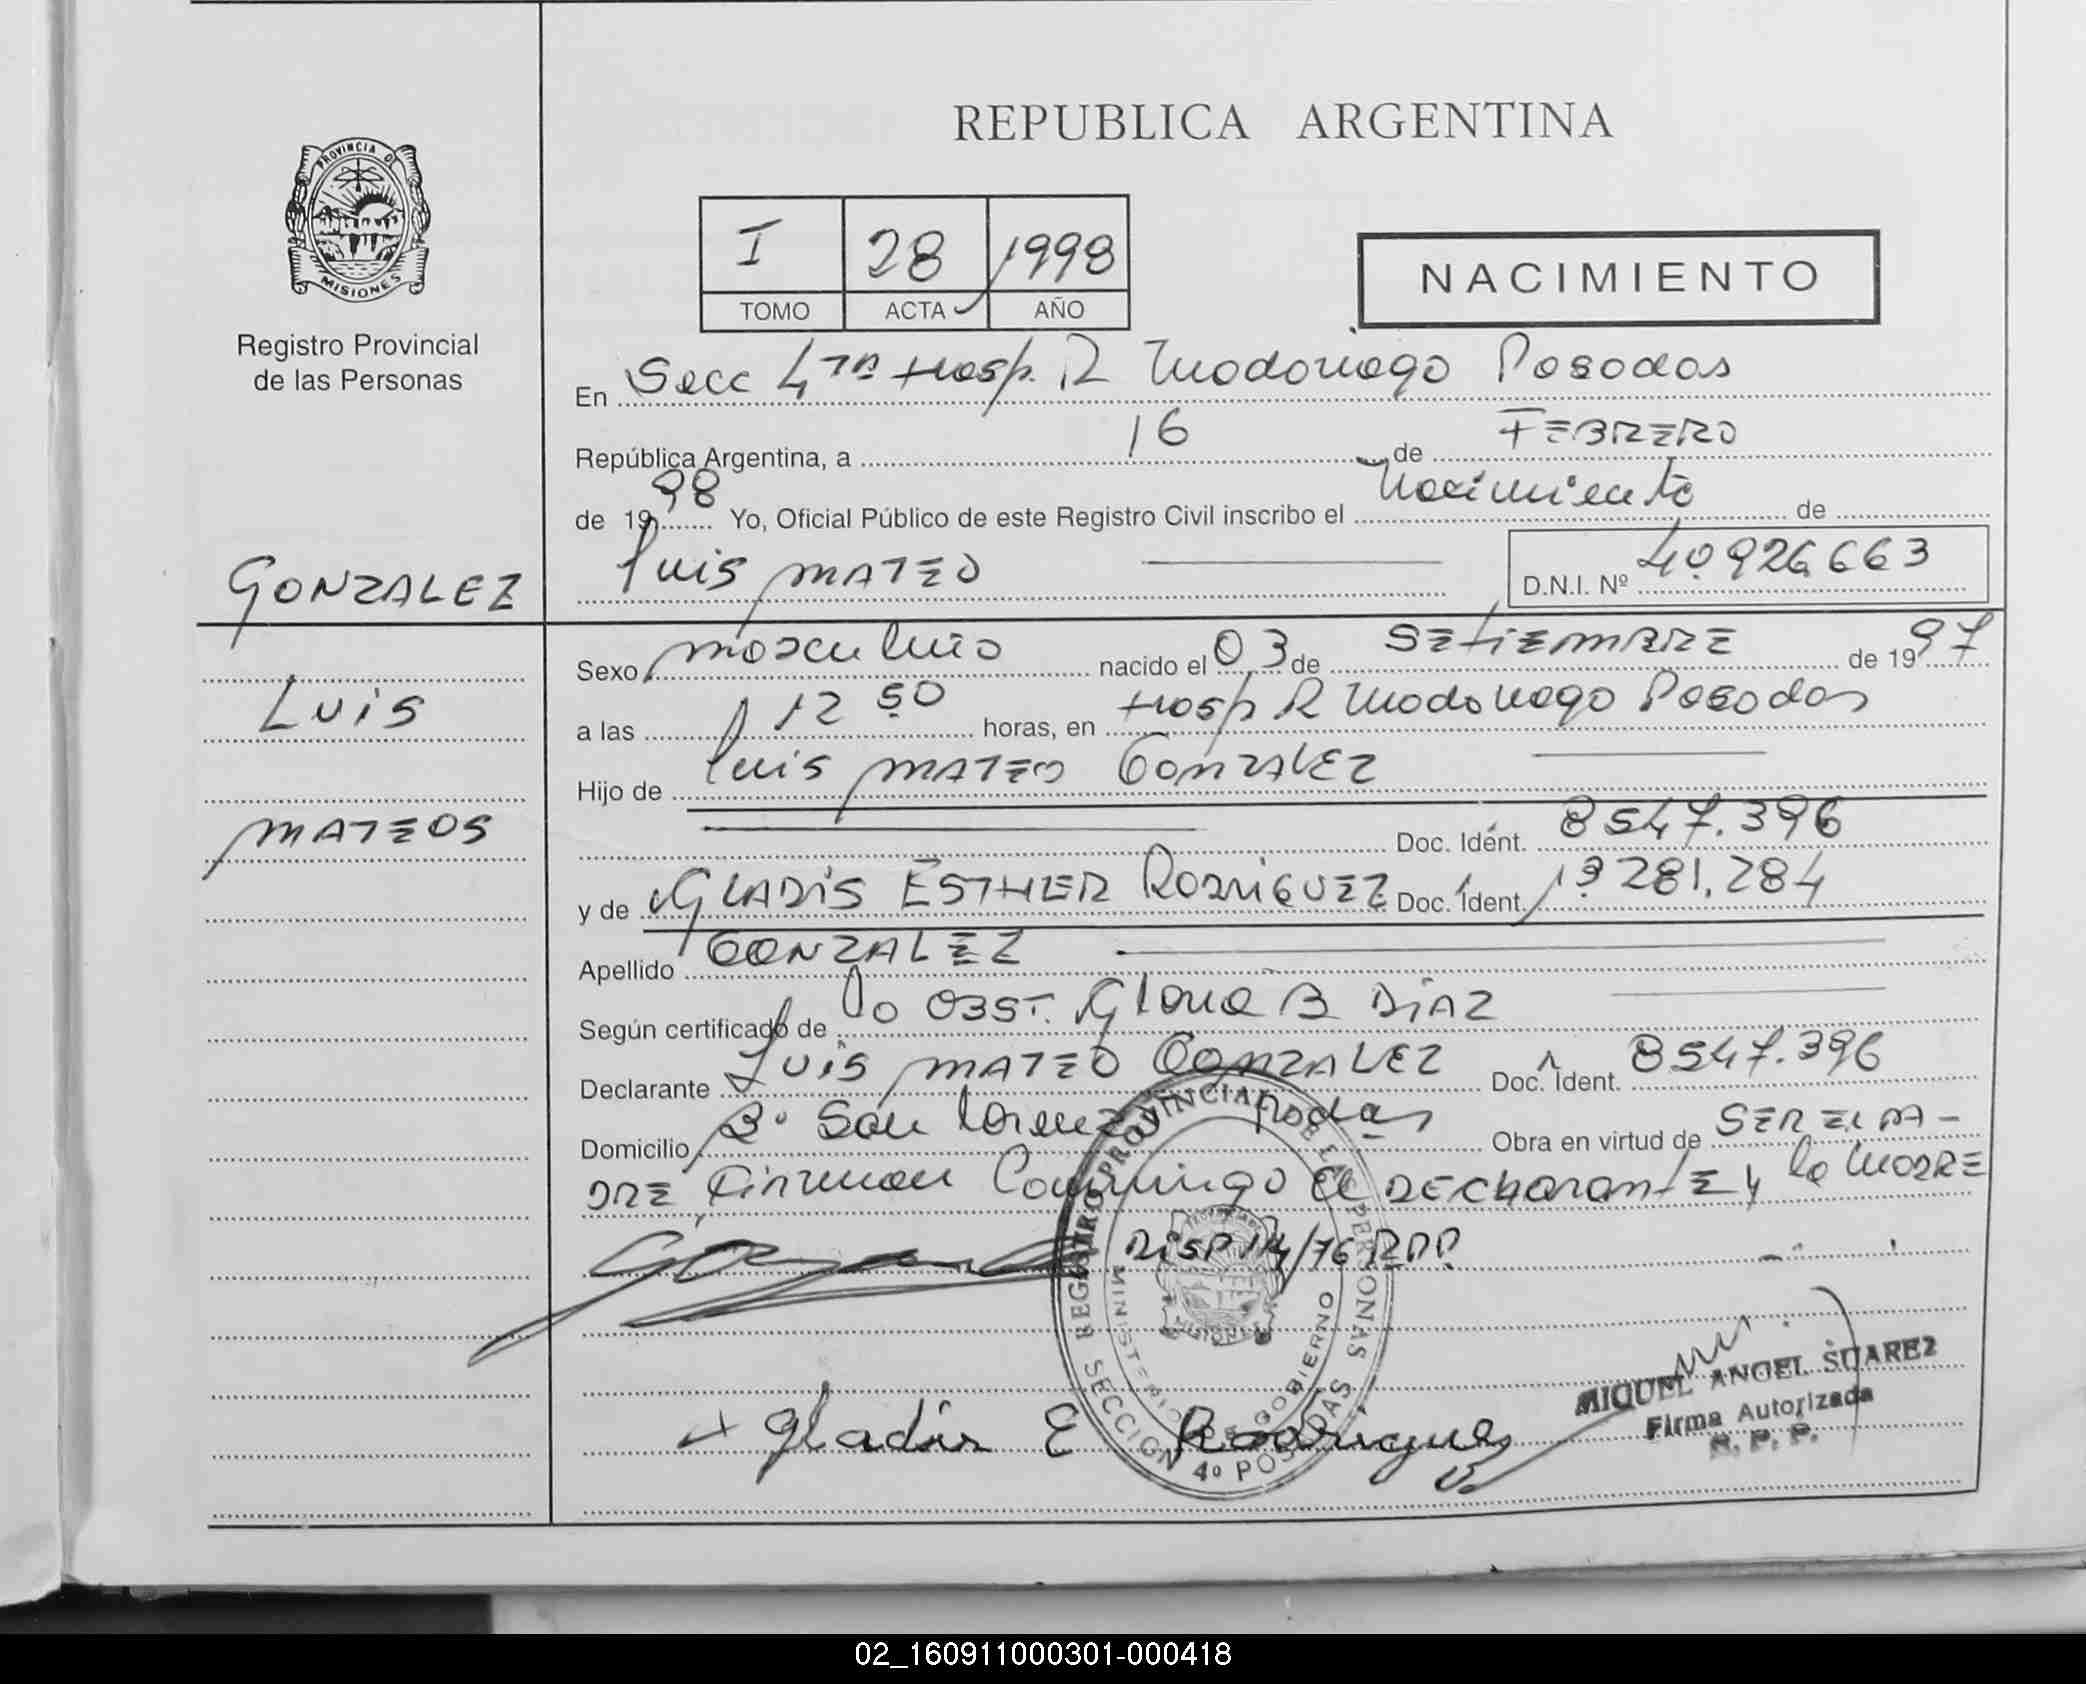 REPUBLICA ARGENTINA
PROVINCIA D
MISIONES
Registro Provincial
de las Personas
I 28 1998
TOMO ACTA AÑO
NACIMIENTO
En Secc 4ta Hosp. R Madariaga Posadas
República Argentina, a 16 de FEBRERO
de 1998 Yo, Oficial Público de este Registro Civil inscribo el Nacimiento de
GONZALEZ
Luis MATEO
D.N.I. Nº 40.926.663
Luis
MATEOS
Sexo masculino nacido el 03 de SETIEMBRE de 1997
a las 12 50 horas, en Hosp R Madariaga Posadas
Hijo de Luis MATEO GONZALEZ
Doc. Idént. 8547.396
y de GLADIS ESTHER RODRIGUEZ Doc. Ident.
281.284
Apellido GONZALEZ
Según certificado de la OBST. Gloria B DIAZ
Declarante Luis MATEO GONZALEZ Doc. Ident. 8547.396
Domicilio Bº San Lorenzo Podas Obra en virtud de SER EL PA-
DRE Firman Conmingo el DECLARANTE y la MADRE
DISP 14/76 RPP
REGISTRO PROVINCIAL DE LAS PERSONAS
MINISTERIO DE GOBIERNO
MISIONES
SECCION 4º POSADAS
Gladis E Rodriguez
MIGUEL ANGEL SUAREZ
Firma Autorizada
R. P. P.
02_160911000301-000418